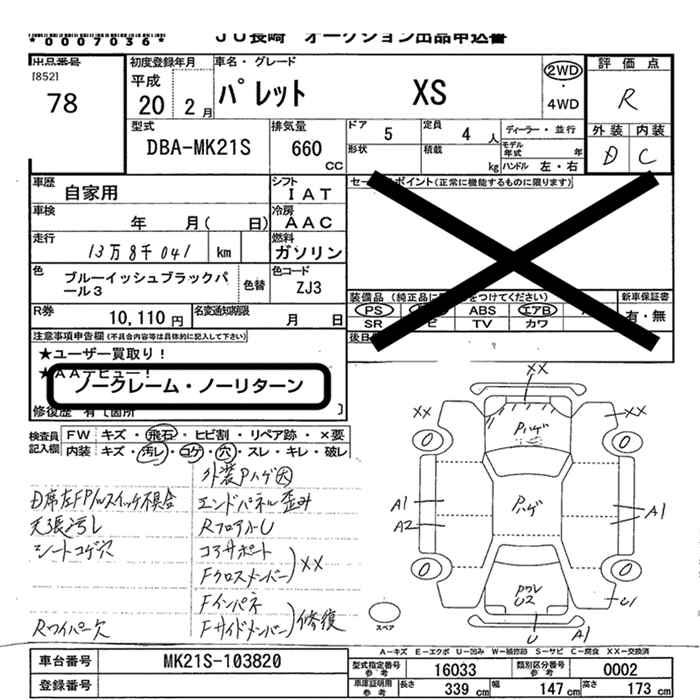 *0007036*
JU長崎 オークション出品申込書
出品番号
[852]
78
初度登録年月
平成
20 2月
車名・グレード
パレット XS
2WD
・
4WD
評価点
R
外装 内装
D C
型式
DBA-MK21S
排気量
660
CC
ドア 5
定員 4 人
ディーラー・並行
形状
積載 kg
モデル年式 年
ハンドル 左・右
車歴 自家用
シフト IAT
車検 年 月( 日)
冷房 AAC
走行 13万8千041 km
燃料 ガソリン
色 ブルーイッシュブラックパール3
色替
色コード ZJ3
R券 10,110円
名変通知期限 月 日
セールスポイント(正常に機能するものに限ります)
装備品 (純正品に をつけてください)
新車保証書
有・無
PS ABS エアB
SR ビ TV カワ
後日
注意事項申告欄(不具合内容等は具体的に記入して下さい)
★ユーザー買取り!
★AAデビュー!
ノークレーム・ノーリターン
修復歴 有[箇所 ]
検査員記入欄
FW キズ・飛石・ヒビ割・リペア跡・×要
内装 キズ・汚レ・コゲ・穴・スレ・キレ・破レ
外装Pハゲ大
D席左FP/Wスイッチ不具合
エンドパネル歪み
天張汚レ
RフロアカU
シートコゲ穴
コアサポート
Fクロスメンバー) XX
Fインパネ
Rワイパー欠
Fサイドメンバー) 修復
XX
XX
XX
Pハゲ
Pハゲ
A1
A2
A1
PワレU2
U1
U
A1
スペア
A-キズ E-エクボ U-凹み W-補修跡 S-サビ C-腐食 XX-交換済
車台番号 MK21S-103820
登録番号
型式指定番号参考 16033
類別区分番号参考 0002
車庫証明用参考 長さ 339 cm 幅 147 cm 高さ 173 cm